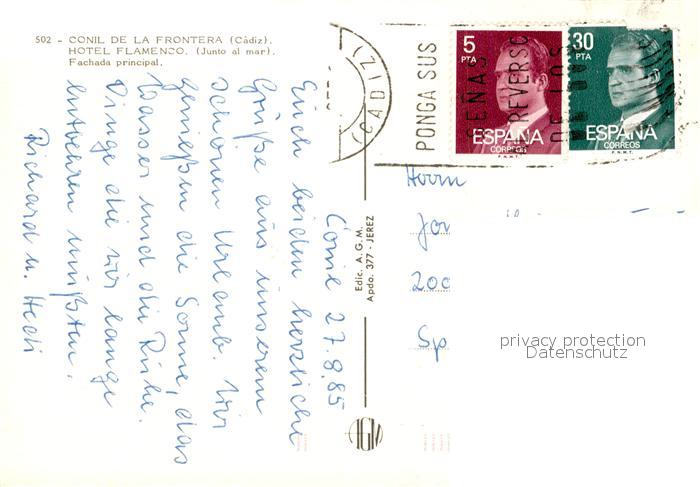 502 - CONIL DE LA FRONTERA (Cádiz).
HOTEL FLAMENCO. (Junto al mar).
Fachada principal.
Conil 27.8.85
Euch beiden herzliche
Grüße aus unserem
schönen Urlaub. Wir
genießen die Sonne, das
Wasser und die Ruhe.
Dinge die wir lange
entbehren mußten.
Richard u. Hedi
Edic. A. G. M.
Apdo. 377 - JEREZ
(CADIZ)
PONGA SUS
SEÑAS
REVERSO
DE LOS
5
PTA
ESPAÑA
CORREOS
F.N.M.T.
30
PTA
ESPAÑA
CORREOS
F.N.M.T.
Herrn
Jor
200
Sp
privacy protection
Datenschutz